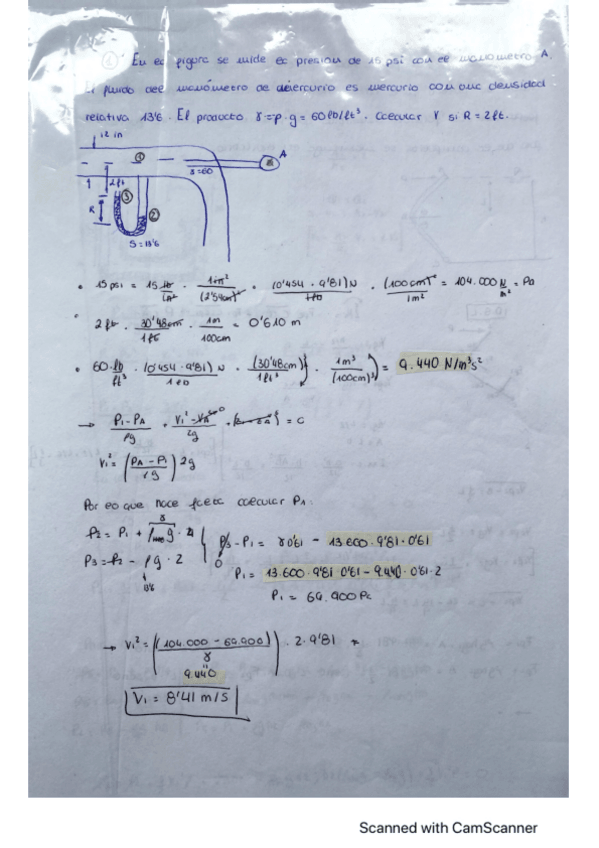 ① En la figura se mide la presión de 15 psi con el manómetro A.
El fluido del manómetro de mercurio es mercurio con una densidad
relativa 13'6. El producto γ=ρ.g = 60 lb/ft³. Calcular V si R = 2ft.
12 in
①
A
γ=60
2ft
③
R
②
S=13'6
• 15 psi = 15 lb/in² · 1in²/(2'54cm)² · (0'454 · 9'81)N/1lb · (100cm)²/1m² = 104.000 N/m² = Pa
• 2 ft · 30'48cm/1ft · 1m/100cm = 0'610 m
• 60 lb/ft³ · (0'454 · 9'81) N/1lb · (30'48cm)³/1ft³ · 1m³/(100cm)³ = 9.440 N/m³s²
→ P₁-PA/ρg + V₁²-VA²/2g = 0
V₁² = (PA - P₁/ρg) 2g
Por lo que hace falta calcular P₁:
P₃-P₁ = γ0'61 - 13.600·9'81·0'61
P₁ = 13.600·9'81·0'61 - 9.440·0'61·2
P₁ = 69.900 Pa
→ V₁² = ((104.000 - 69.900)/γ) · 2·9'81
9.440
V₁ = 8'41 m/s
Scanned with CamScanner